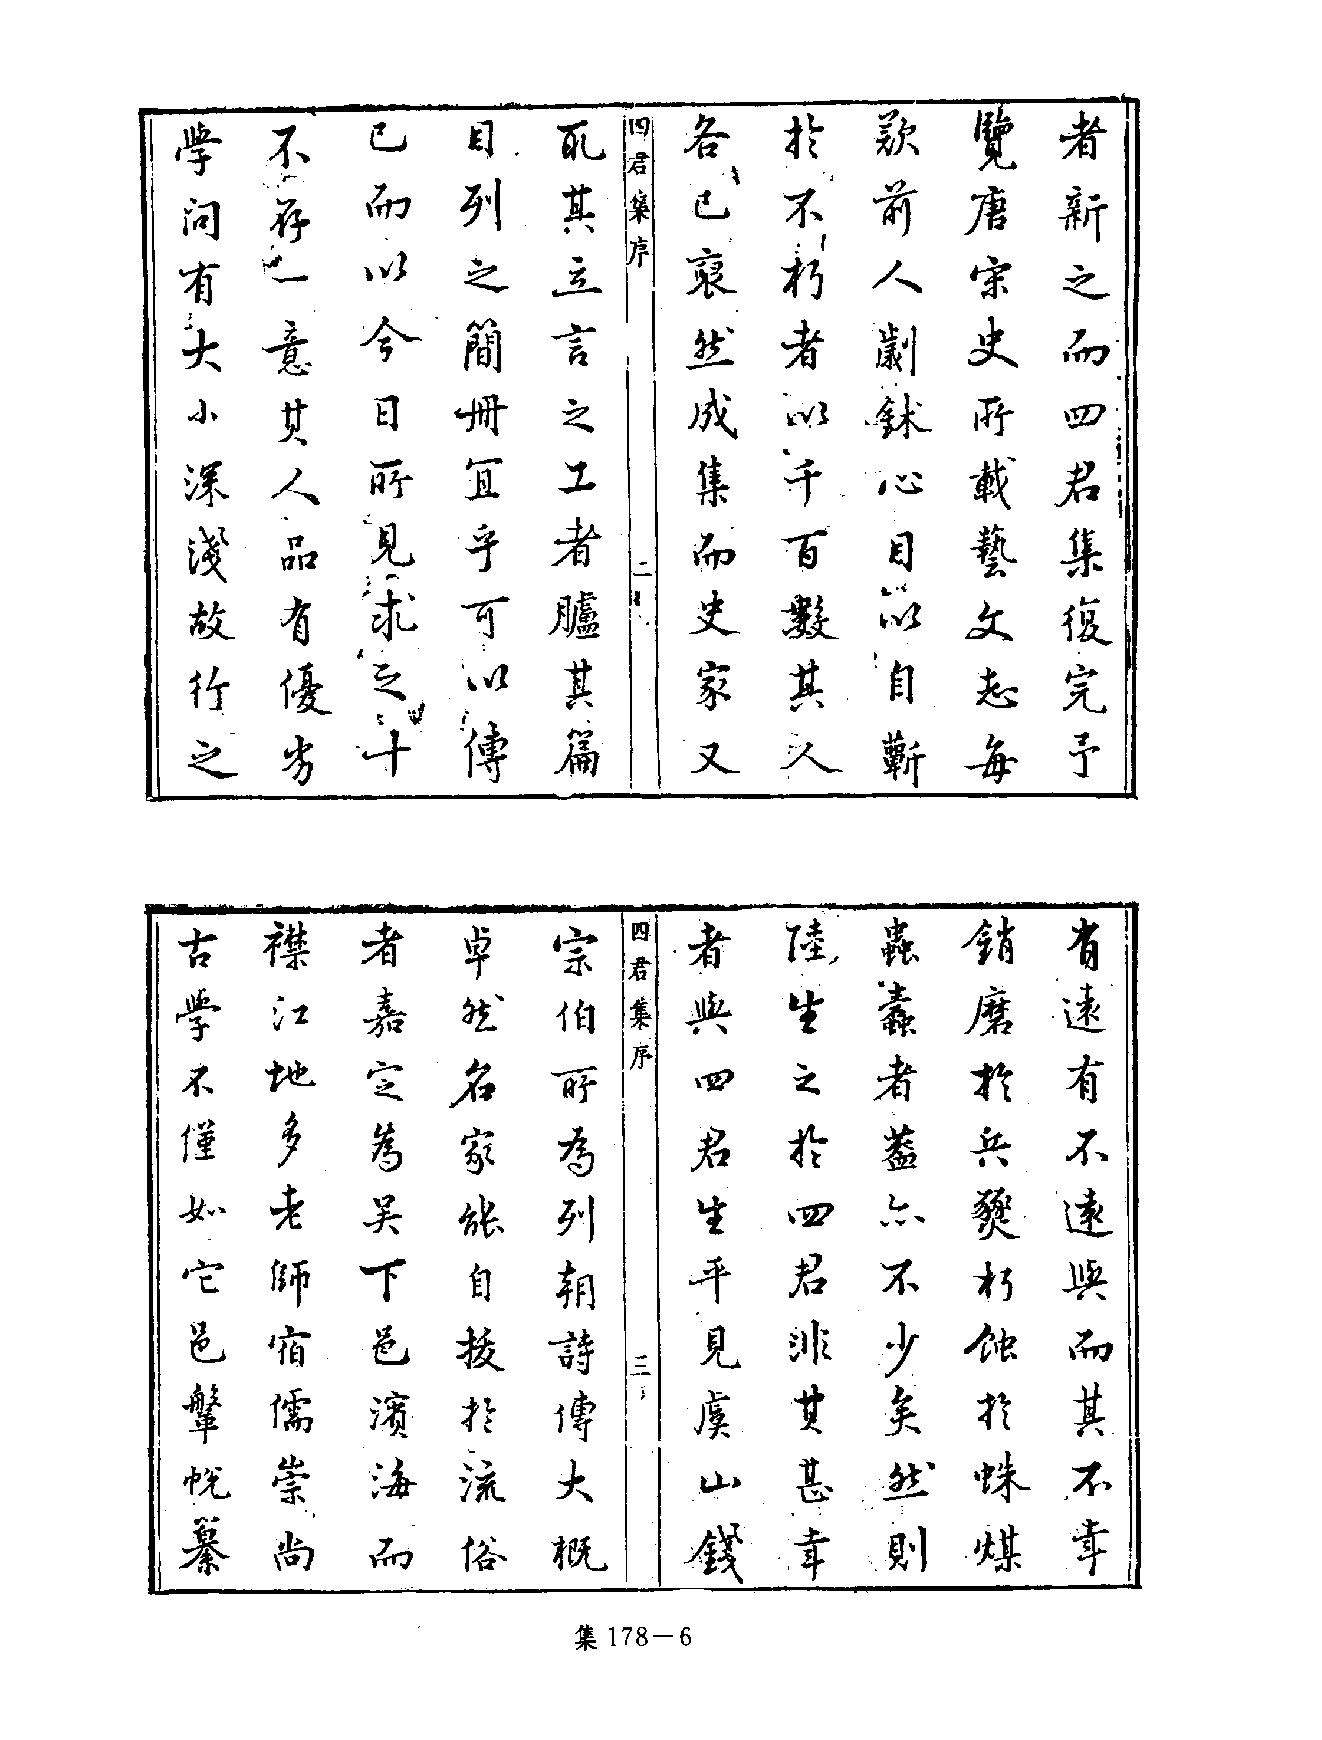 者新之而四君集復完予
覽唐宋史所載藝文志每
歎前人劌鉥心目以自蘄
於不朽者以千百數其人
各已裒然成集而史家又
四君集序
二
取其立言之工者臚其篇
目列之簡冊宜乎可以傳
已而以今日所見求之十
不存一意其人品有優劣
學問有大小深淺故行之
有遠有不遠與而其不幸
銷磨於兵燹朽蝕於蛛煤
蟲蠹者蓋亦不少矣然則
陸生之於四君非其甚幸
者與四君生平見虞山錢
四君集序
三
宗伯所為列朝詩傳大概
卓然名家能自拔於流俗
者嘉定為吳下邑濱海而
襟江地多老師宿儒崇尚
古學不僅如它邑鞶帨纂
集 178－6